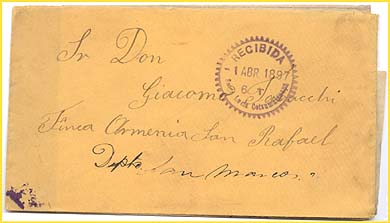 Sr Don
RECIBIDA
1 ABR 1897
6
Giacomo
Finca Armenia San Rafael
Depto. San Marcos.